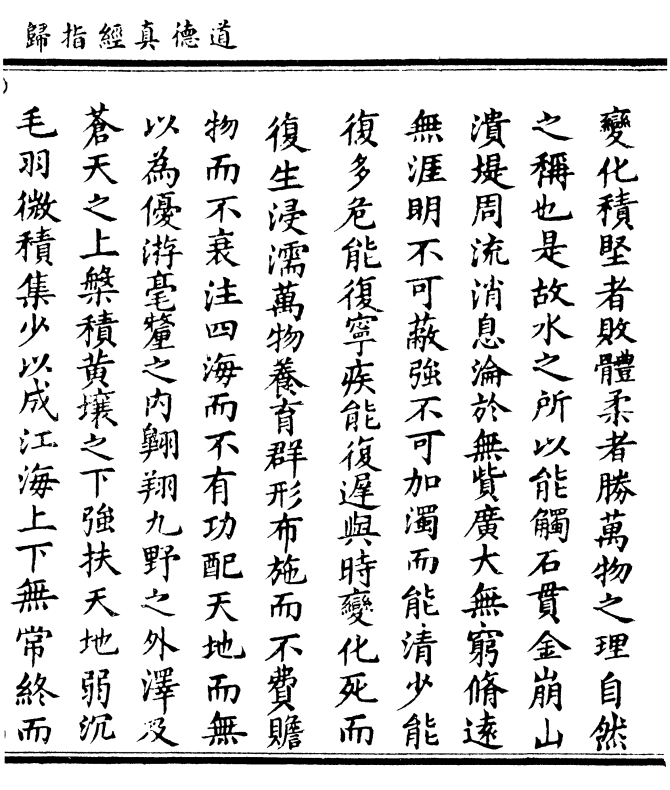 道德真經指歸
變化積堅者敗體柔者勝萬物之理自然
之稱也是故水之所以能觸石貫金崩山
潰堤周流消息淪於無貲廣大無窮脩遠
無涯明不可蔽強不可加濁而能清少能
復多危能復寧疾能復遲與時變化死而
復生浸濡萬物養育群形布施而不費贍
物而不衰注四海而不有功配天地而無
以為優游毫釐之內翱翔九野之外澤及
蒼天之上槃積黃壤之下強扶天地弱沉
毛羽微積集少以成江海上下無常終而